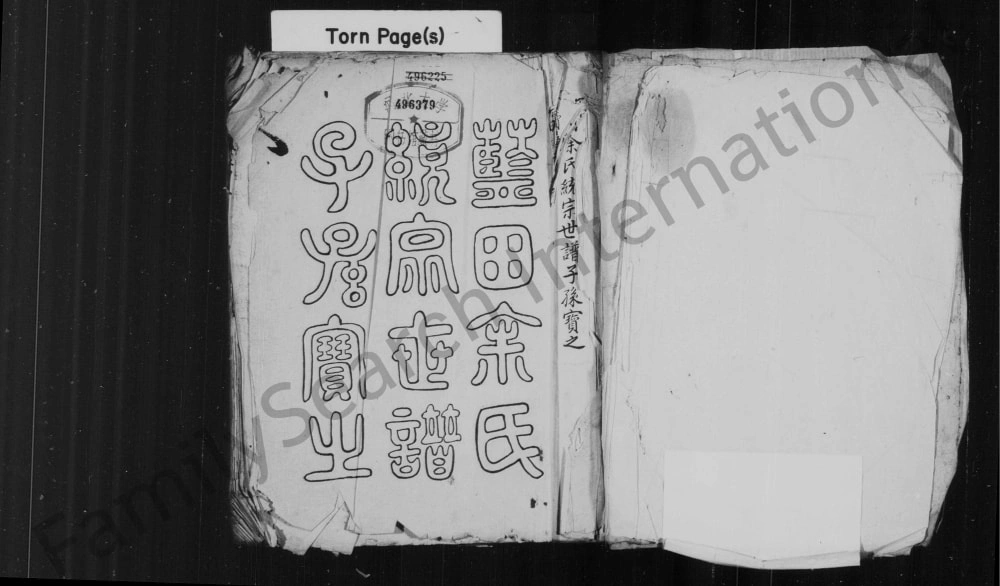 Torn Page(s)
496225
496379
藍田余氏
統宗世譜
子孫寶之
余氏統宗世譜子孫寶之
FamilySearch International